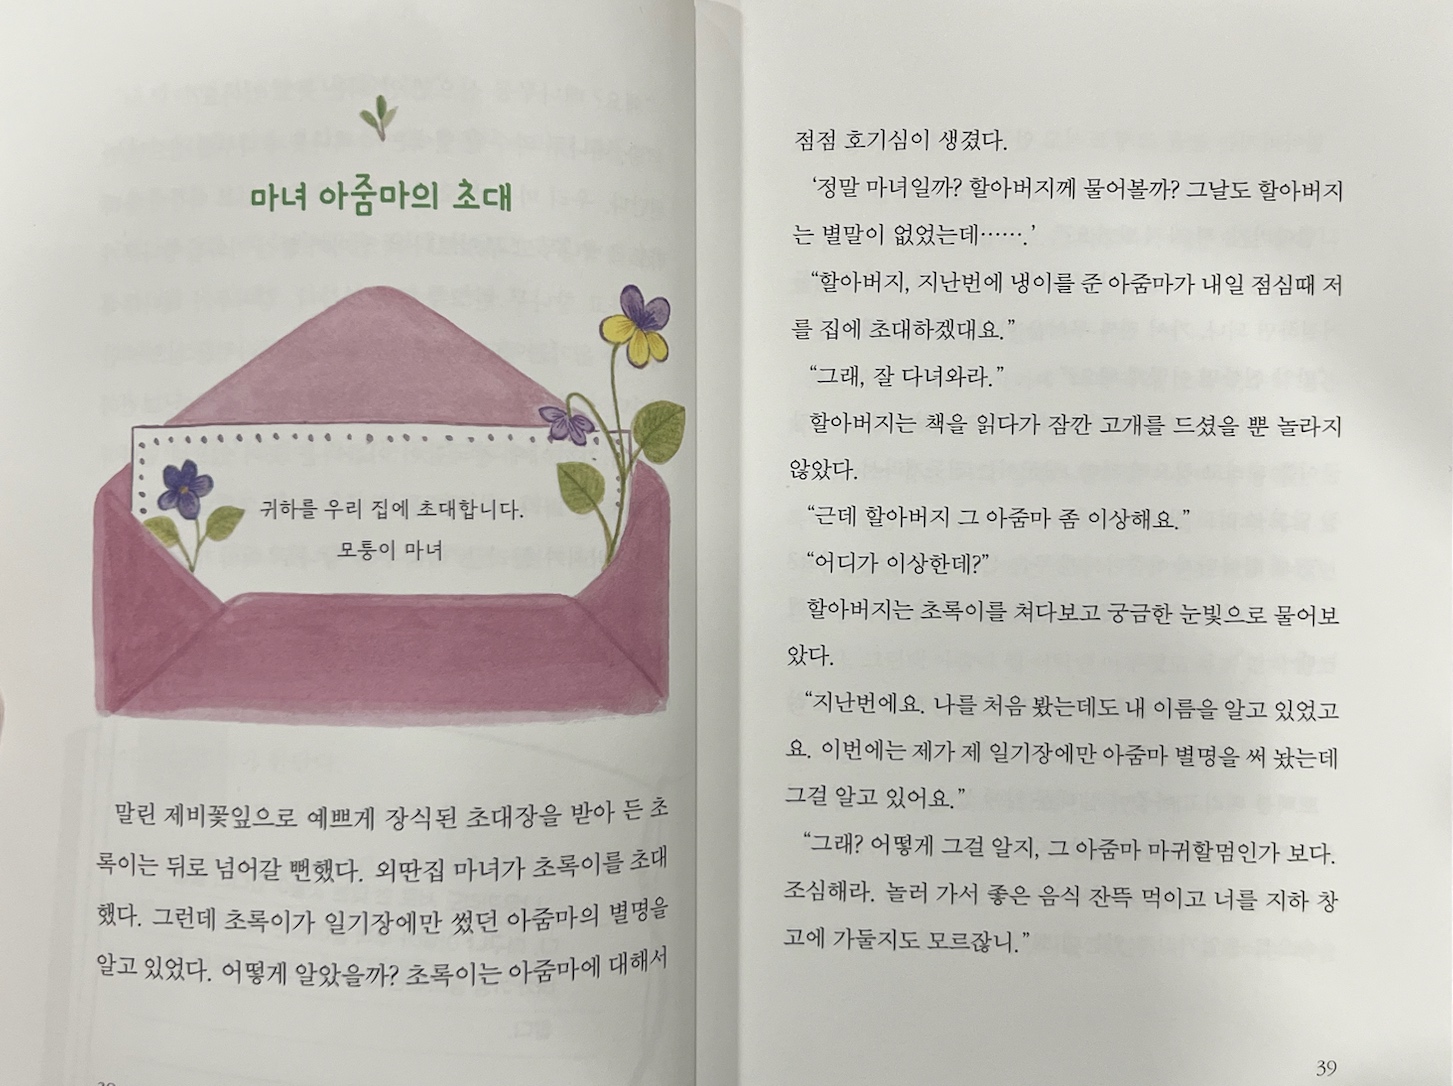 마녀 아줌마의 초대
귀하를 우리 집에 초대합니다.
모퉁이 마녀
말린 제비꽃잎으로 예쁘게 장식된 초대장을 받아 든 초
록이는 뒤로 넘어갈 뻔했다. 외딴집 마녀가 초록이를 초대
했다. 그런데 초록이가 일기장에만 썼던 아줌마의 별명을
알고 있었다. 어떻게 알았을까? 초록이는 아줌마에 대해서
점점 호기심이 생겼다.
‘정말 마녀일까? 할아버지께 물어볼까? 그날도 할아버지
는 별말이 없었는데…….’
“할아버지, 지난번에 냉이를 준 아줌마가 내일 점심때 저
를 집에 초대하겠대요.”
“그래, 잘 다녀와라.”
할아버지는 책을 읽다가 잠깐 고개를 드셨을 뿐 놀라지
않았다.
“근데 할아버지 그 아줌마 좀 이상해요.”
“어디가 이상한데?”
할아버지는 초록이를 쳐다보고 궁금한 눈빛으로 물어보
았다.
“지난번에요. 나를 처음 봤는데도 내 이름을 알고 있었고
요. 이번에는 제가 제 일기장에만 아줌마 별명을 써 놨는데
그걸 알고 있어요.”
“그래? 어떻게 그걸 알지, 그 아줌마 마귀할멈인가 보다.
조심해라. 놀러 가서 좋은 음식 잔뜩 먹이고 너를 지하 창
고에 가둘지도 모르잖니.”
39